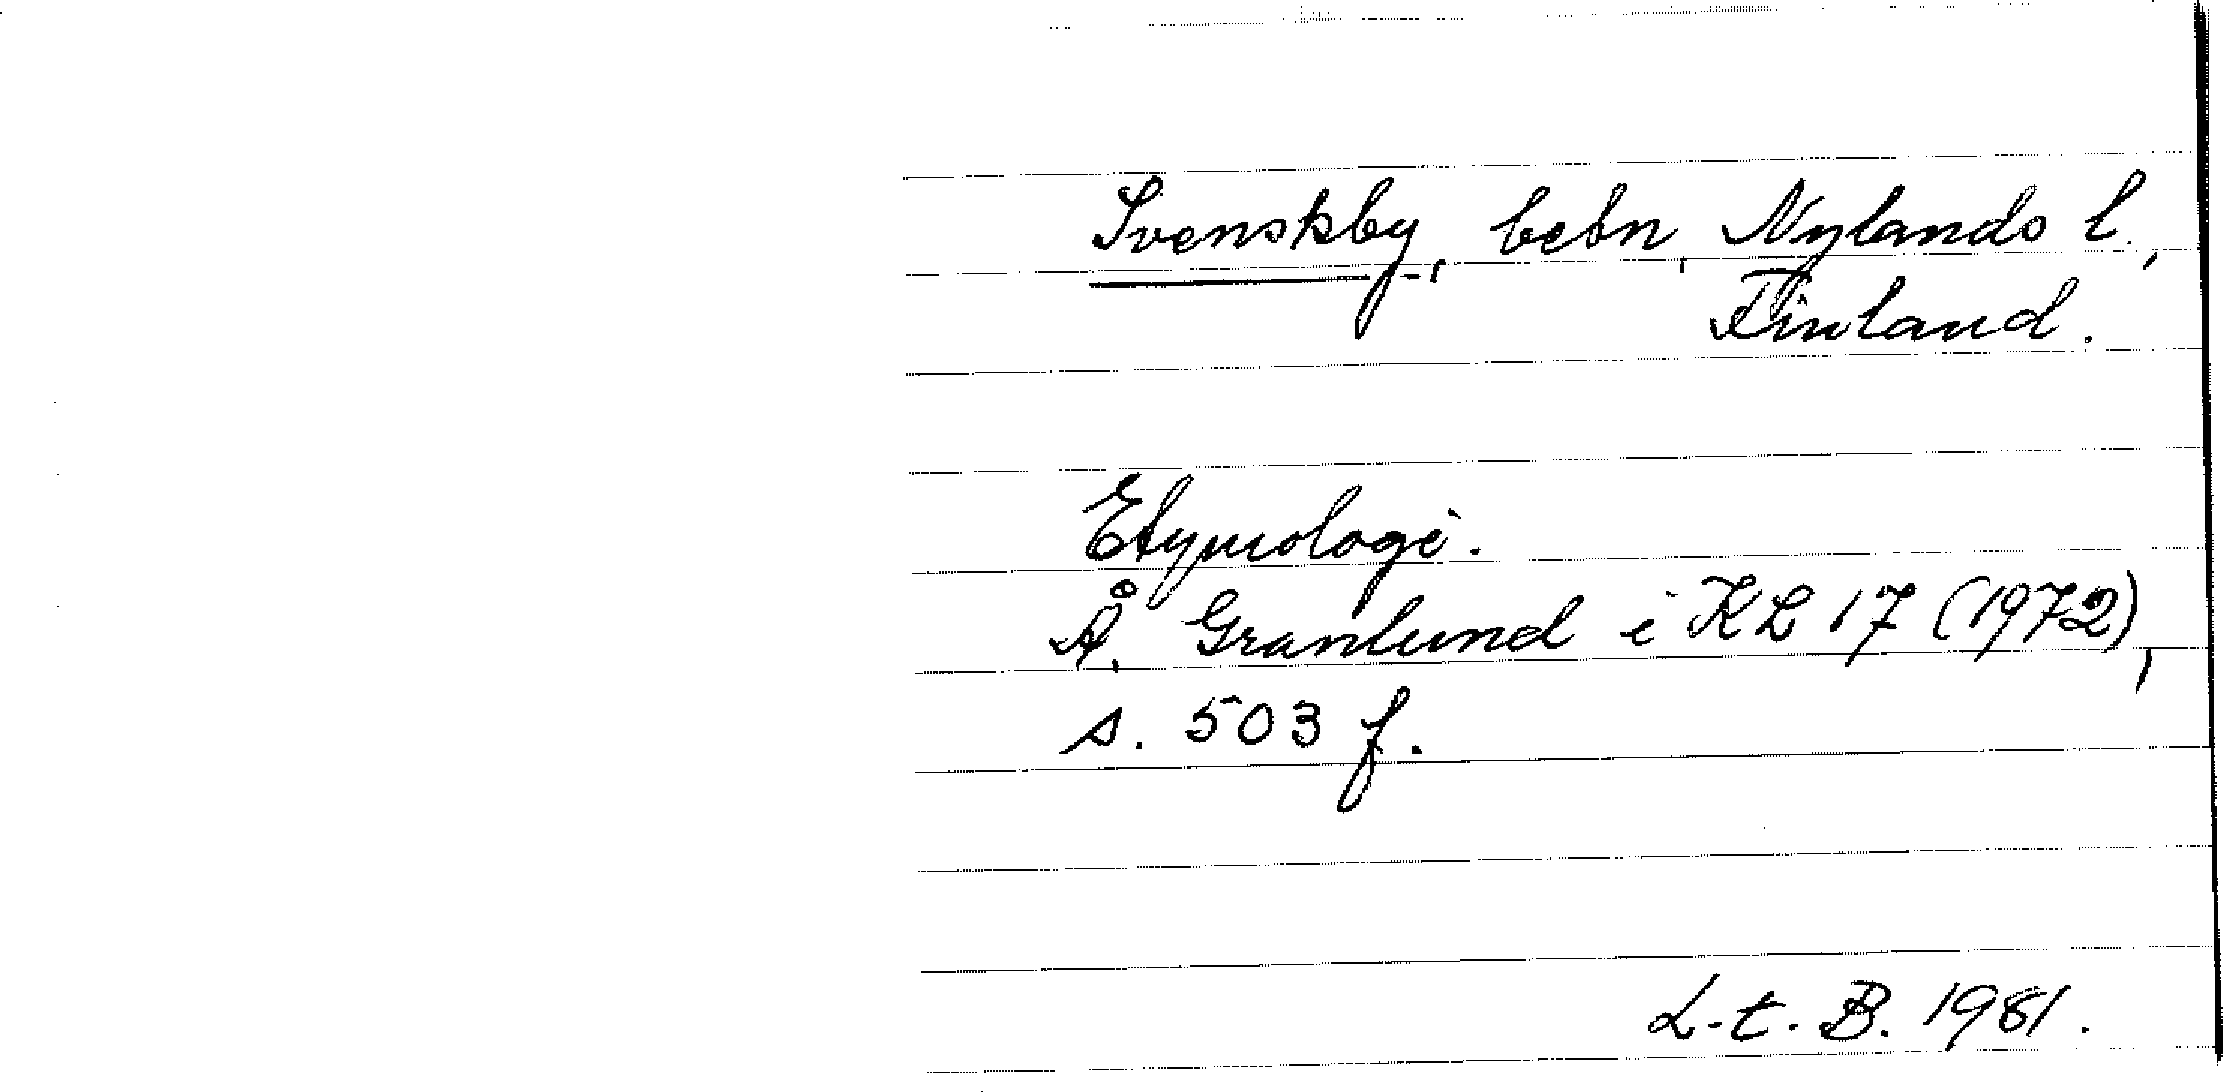 Svenskby, bebn, Nylands l.,
Finland.
Etymologi.
Å. Granlund i KL 17 (1972),
s. 503 f.
L-t. B. 1981.